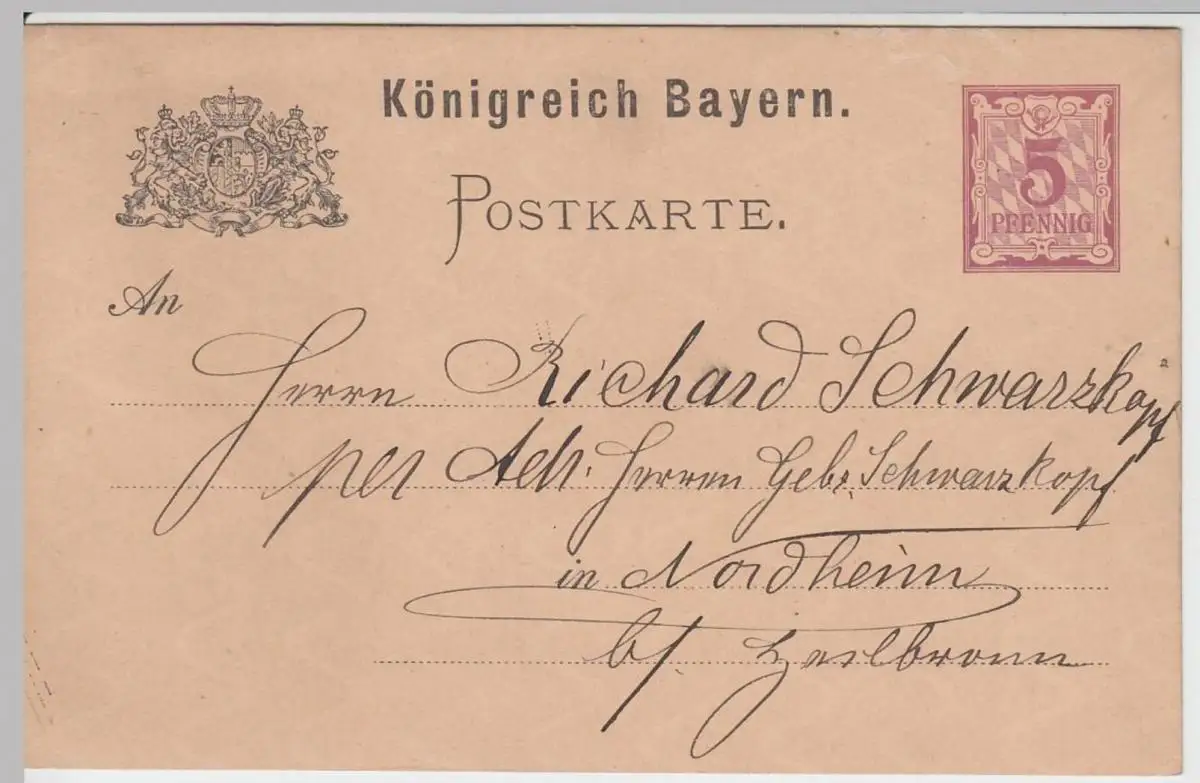 Königreich Bayern.
POSTKARTE.
5
PFENNIG
An
Herrn Richard Schwarzkopf
per Adr. Herren Gebr. Schwarzkopf
in Nordheim
b/. Heilbronn